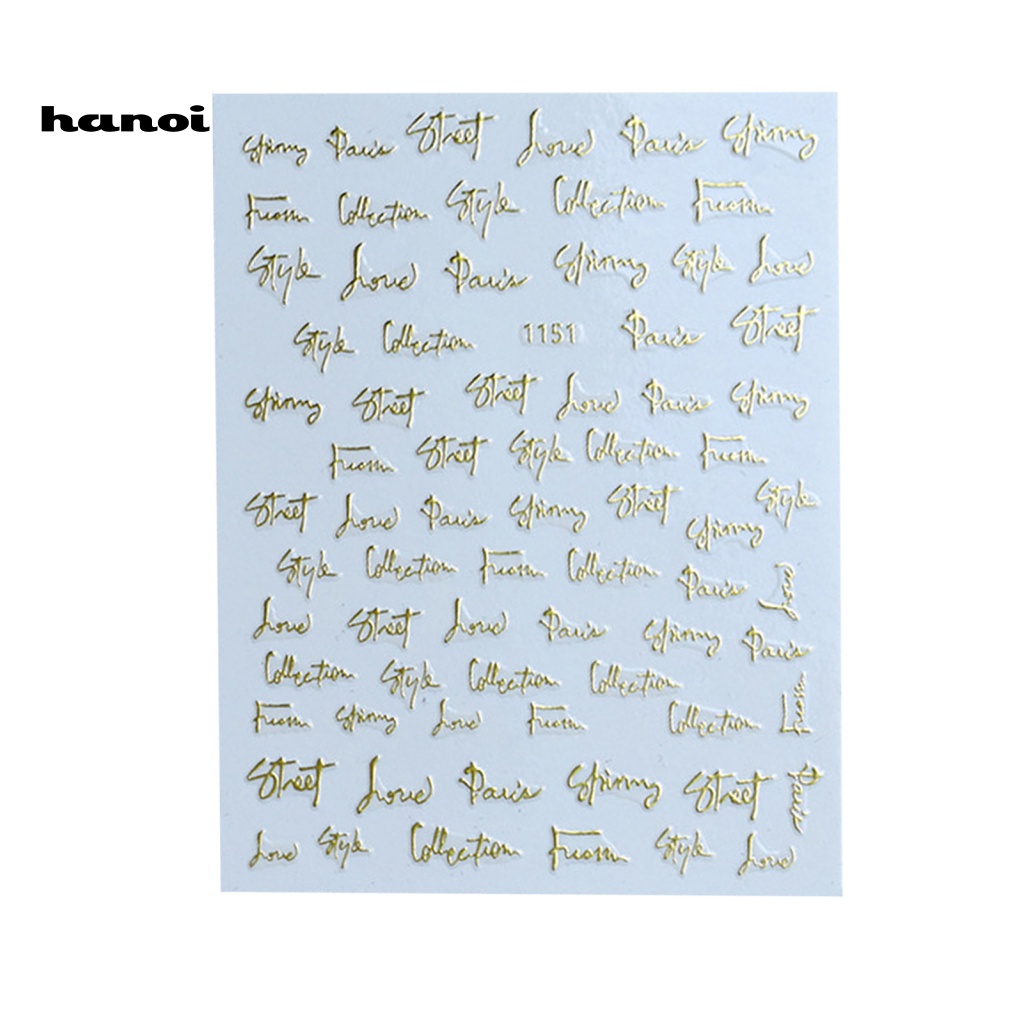 hanoi
Spinny Paris Street Love Paris Spinny
From Collection Style Collection From
Style Love Paris Spinny Style Love
Style Collection 1151 Paris Street
Spinny Street Street Love Paris Spinny
From Street Style Collection From
Street Love Paris Spinny Street Spinny Style
Style Collection From Collection Paris Love
Love Street Love Paris Spinny Paris
Collection Style Collection Collection From
From Spinny Love From Collection
Street Love Paris Spinny Street Paris
Love Style Collection From Style Love